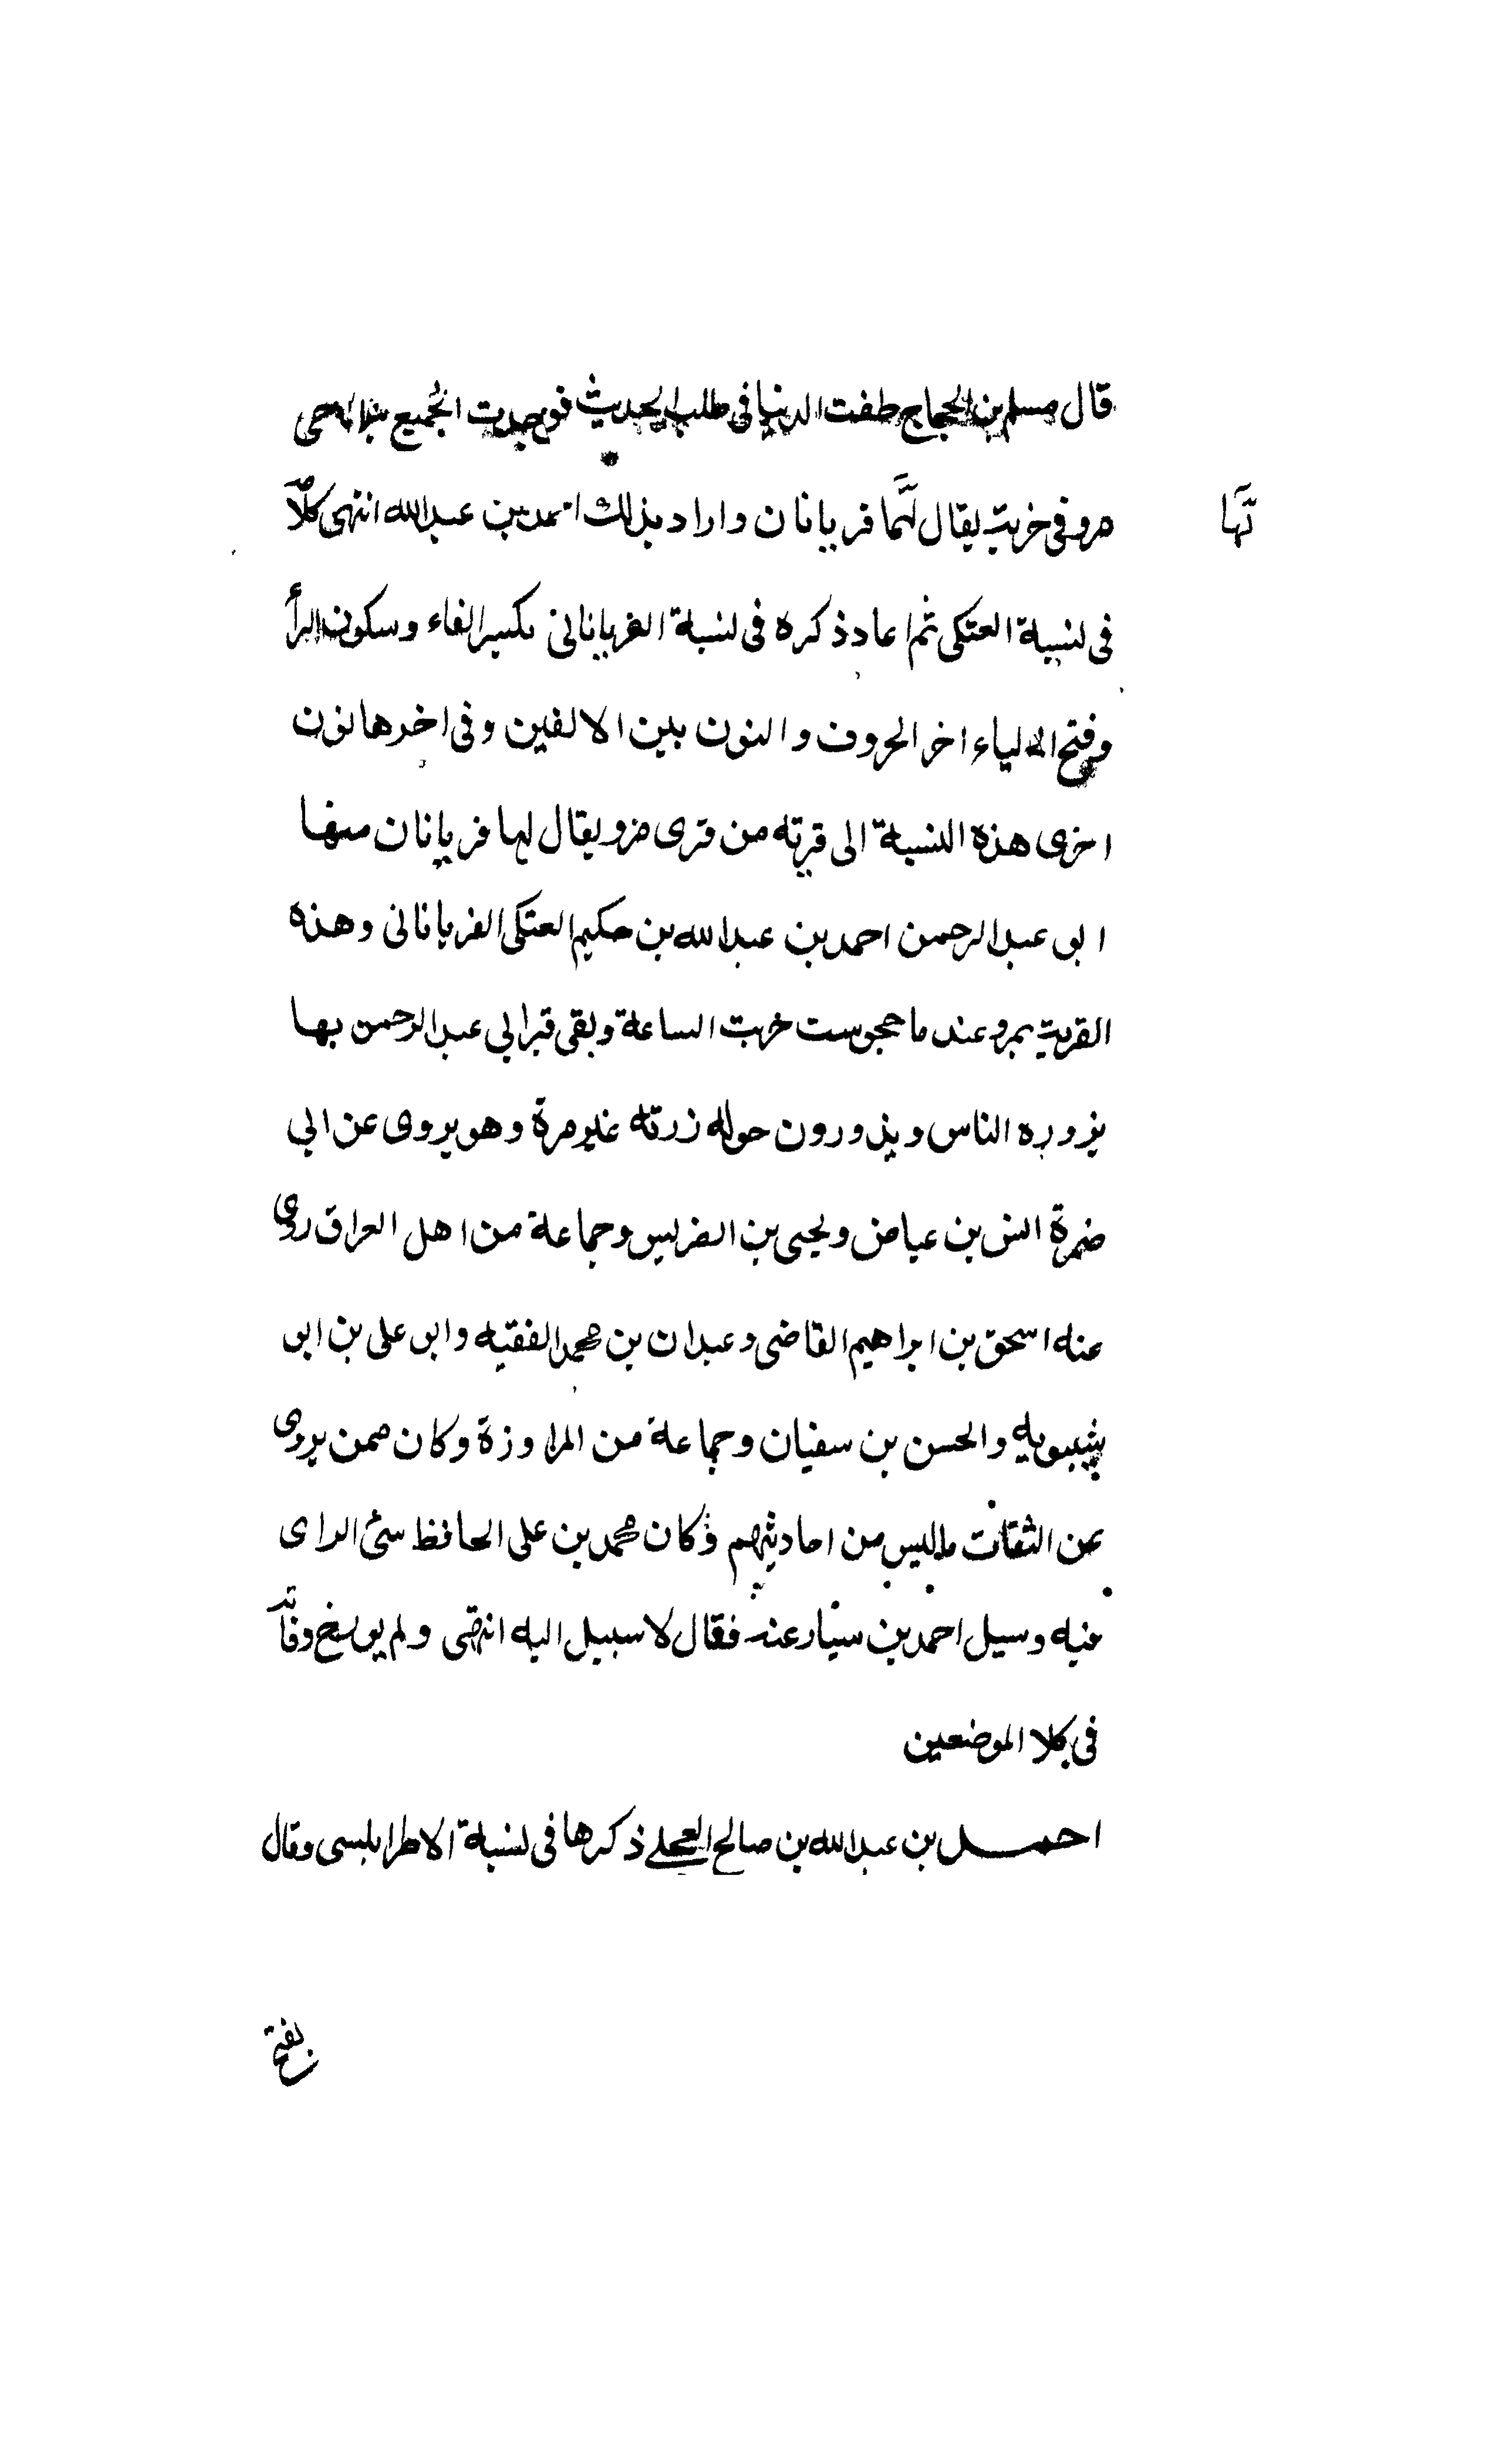 قال مسلم بن الحجاج طفت الدنيا فى طلب الحديث فوجدت الجميع
مرو فى خربة يقال لها فريانان واراد بذلك احمد بن عبد الله انتهى كلامه
لها
فى نسبة العتكى ثم اعاد ذكره فى نسبة الفريانانى بكسر الفاء وسكون الرأ
وفتح الياء اخر الحروف والنون بين الالفين وفى اخرها نون
اخرى هذه النسبة الى قرية من قرى مرو يقال لها فريانان منها
ابو عبد الرحمن احمد بن عبد الله بن حكيم العتكى الفريانانى وهذه
القرية بمرو عند ماحجوست خربت الساعة وبقى قبر ابى عبد الرحمن بها
يزوره الناس ويذورون حوله زرته غير مرة وهو يروى عن ابى
ضمرة انس بن عياض ويحيى بن الضريس وجماعة من اهل العراق روى
عنه اسحق بن ابراهيم القاضى وعبدان بن محمد الفقيه وابو على بن ابو
شيبويه والحسن بن سفيان وجماعة من المراوزة وكان ممن يروى
عن الثقات ماليس من احاديثهم وكان محمد بن على الحافظ سئ الراى
فيه وسيل احمد بن سيار عنه فقال لا سبيل اليه انتهى ولم يورخ وفاته
فى كلا الموضعين
احمد بن عبد الله بن صالح العجلى ذكرها فى نسبة الاطرابلسى وقال
بفتح